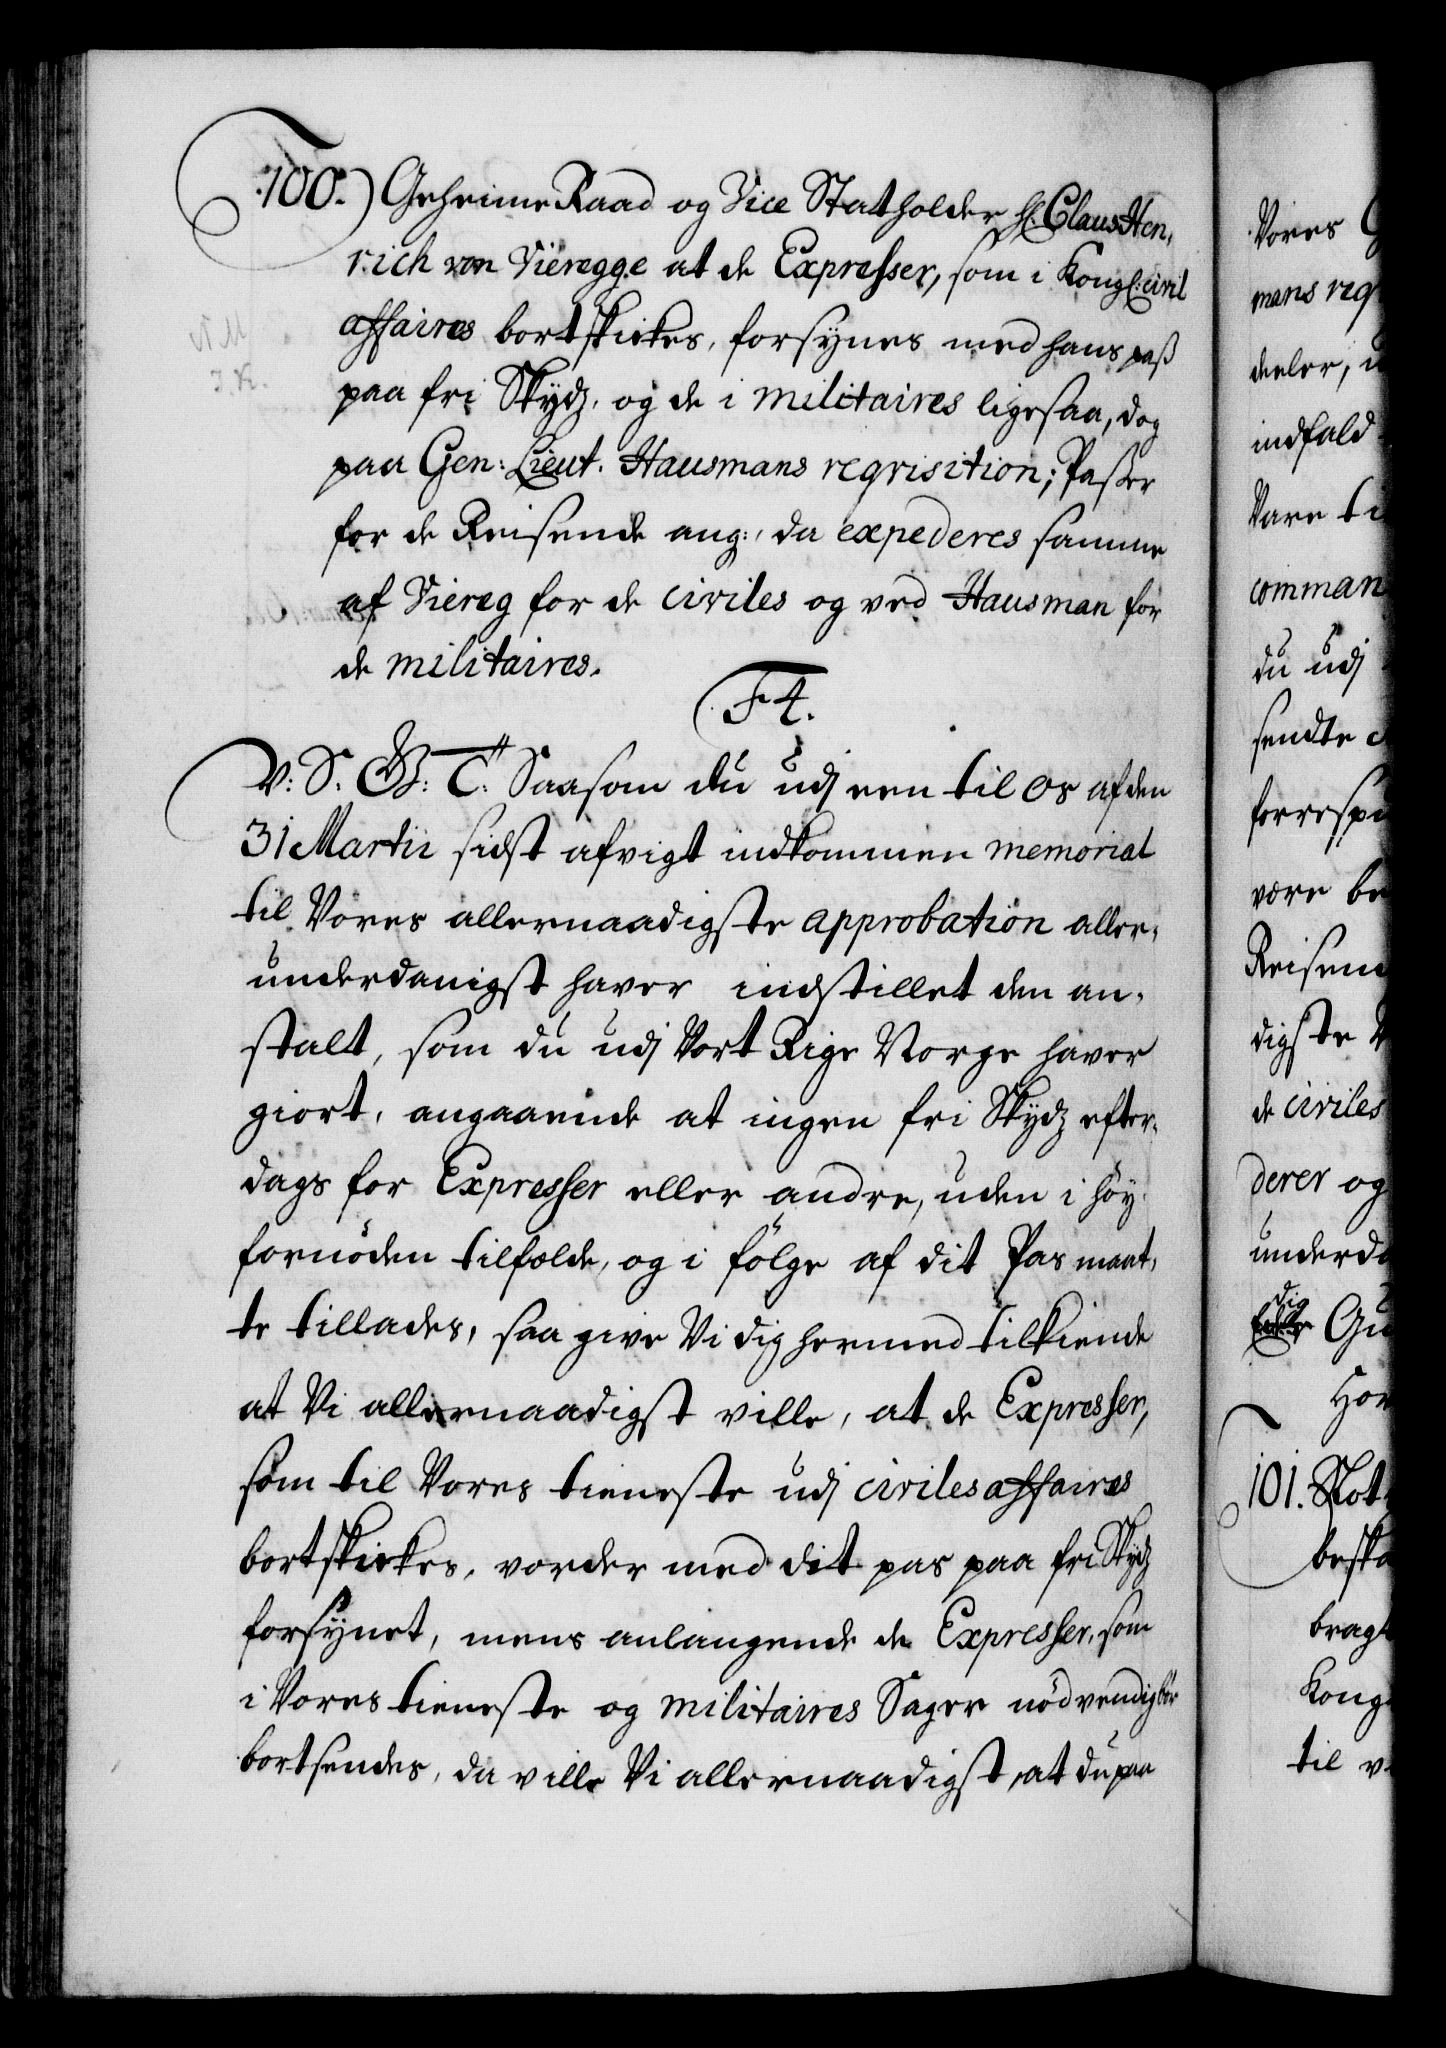 100.) Geheime Raad og Vice Statholder H. Claus Hen,
rich von Vieregge at de Expresser, som i Kongl: civil
affaires bortskikes, forsynes med hans paß
paa fri Skydz, og de i militaires ligesaa, dog
paa Gen: Lieut. Hausmans reqvisition; Paßer
for de Reisende ang:, da expederes samme
af Viereg for de civiles og ved Hausman for
de militaires.
F4.
V: S. G: T: Saasom du udj een til os af den
31 Martii sidst afvigt indkommen memorial
til Vores allernaadigste approbation aller,
underdanigst haver indstillet den an,
stalt, som du udj Vort Rige Norge haver
giort, angaaende at ingen fri Skydz efter,
dags for Expresser eller andre, uden i höy
fornöden tilfælde, og i fölge af dit Pas maat,
te tillades, saa give Vi dig hermed tilkiende
at Vi allernaadigst ville, at de Expresser,
som til Vores tieneste udj civiles affaires
bortskikes, vorder med dit pas paa fri Skydz
forsynet, mens anlangende de Expresser, som
i Vores tieneste og militaires Sager nödvendig bör
bortsendes, da ville Vi allernaadigst, at du paa
Vores
mans req
deeler, u
indfald
Vare ti
comman
du udj
sendte
forresp
være be
Reisen
digste V
de civiles
derer og
underda
dig
Gu
Hor
101. Not
beska
bragt
Kong
til v